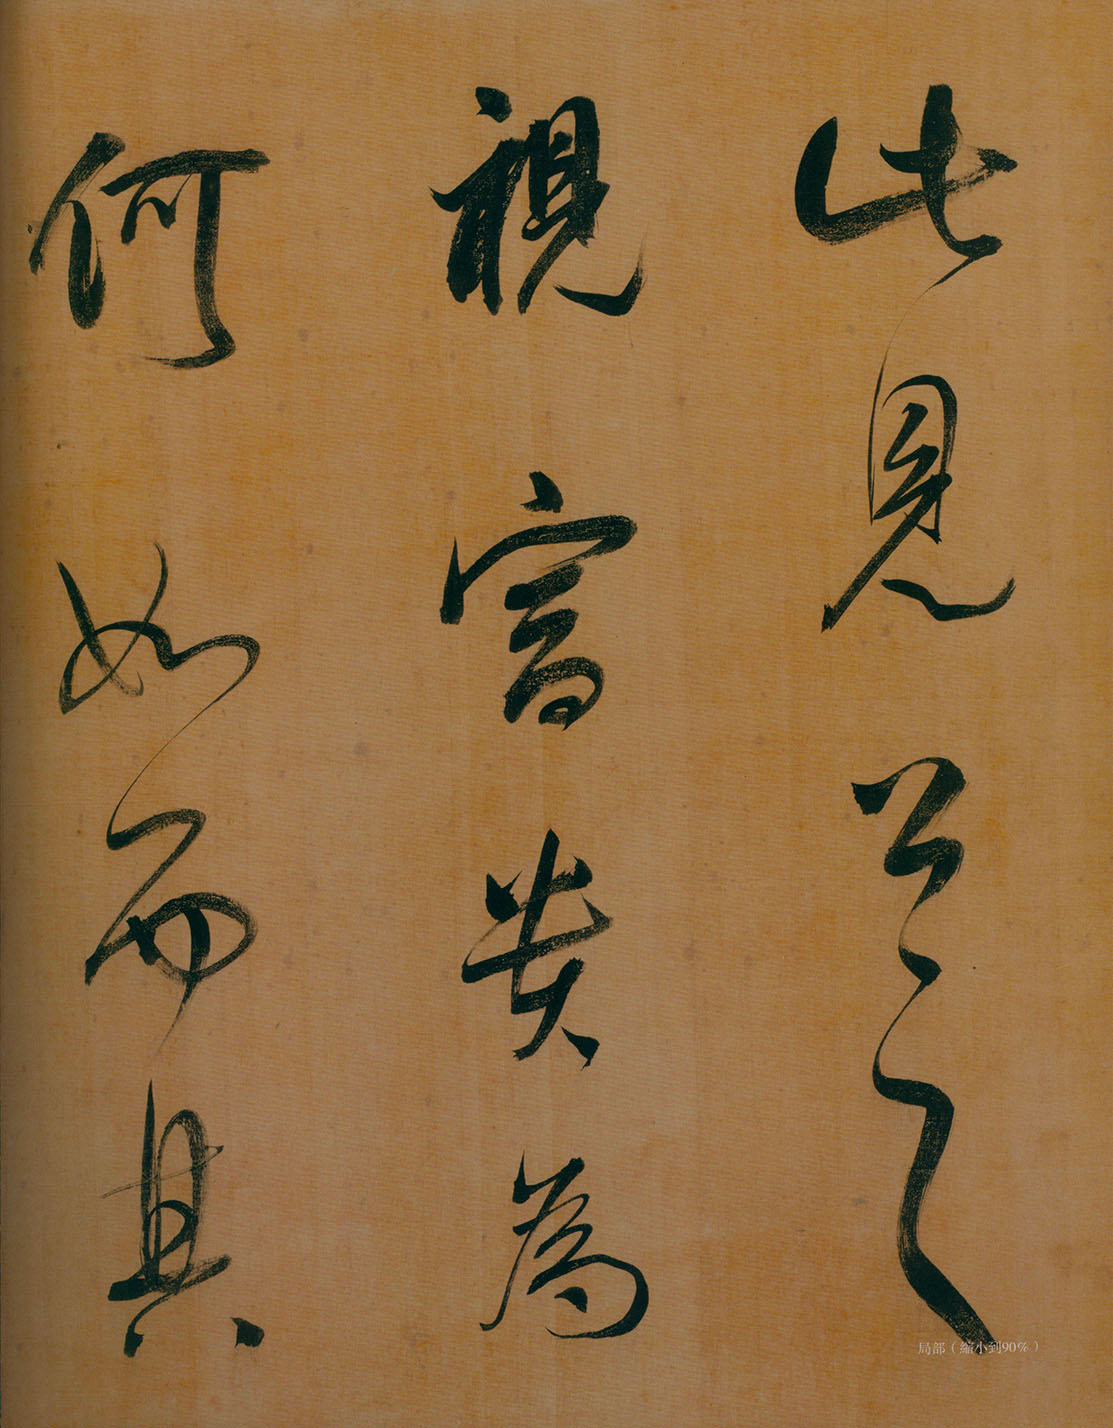 此見公之
視富貴為
何如而其
局部（縮小到90%）